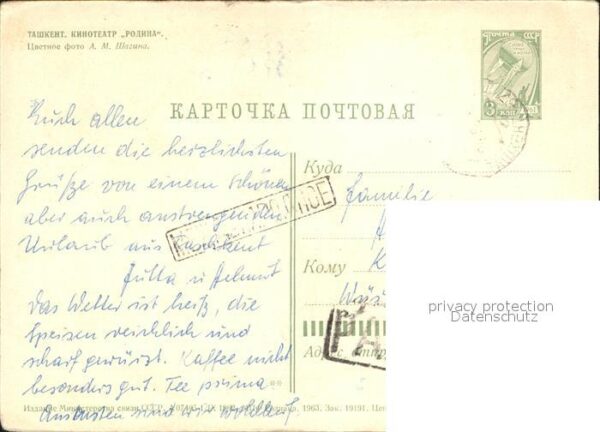 ТАШКЕНТ. КИНОТЕАТР „РОДИНА“.
Цветное фото А. М. Шагина.
ПОЧТА СССР
3 коп
1961
КАРТОЧКА ПОЧТОВАЯ
Euch allen
senden die herzlichsten
Grüße von einem schönen
aber auch anstrengenden
Urlaub aus Taschkent
Jutta u Helmut
Das Wetter ist heiß, die
Speisen reichlich und
scharf gewürzt. Kaffee nicht
besonders gut. Tee prima
Ansonsten sind wir wohlauf
Куда
Familie
Кому
Адрес
privacy protection
Datenschutz
Издание Министерства связи СССР.
1963. Зак. 19191.